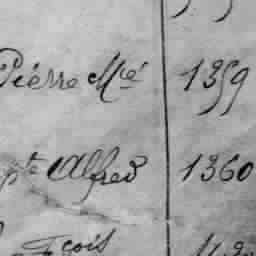 Pierre Mié 1359
pte Alfred 1360
Fçois